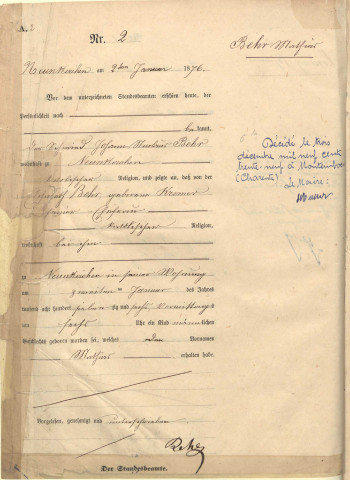 A. 2
Nr. 2
Behr Mathias
Neunkirchen am 2ten Januar 1876.
Vor dem unterzeichneten Standesbeamten erschien heute, der
Persönlichkeit nach
bekannt,
der Johann Nikolaus Behr
wohnhaft zu Neunkirchen
katholischer Religion, und zeigte an, daß von der
Behr, geborene Kremer
seiner Ehefrau
katholischer Religion,
wohnhaft bei ihm
zu Neunkirchen in seiner Wohnung
am zweiten Januar des Jahres
tausend acht hundert siebenzig und sechs Vormittags
um sechs Uhr ein Kind männlichen
Geschlechts geboren worden sei, welches den Vornamen
Mathias erhalten habe.
Vorgelesen, genehmigt und unterschrieben
Behr
Der Standesbeamte.
Décédé le trois
décembre mil neuf cent
trente-neuf à Montembœuf
(Charente)
Le Maire: